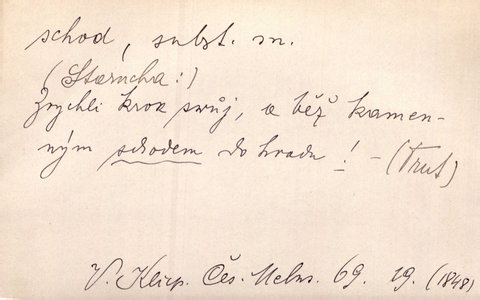 schod, subst. m.
(Starucha:)
Zrychli krok swůj, a běž kamen-
ným schodem do hradu! - (Trut)
V. Klicp. Čes. Melm. 69. 19. (1848)